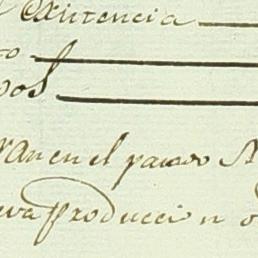 Existencia
to
pos
van en el pararo A
eva Produccion o